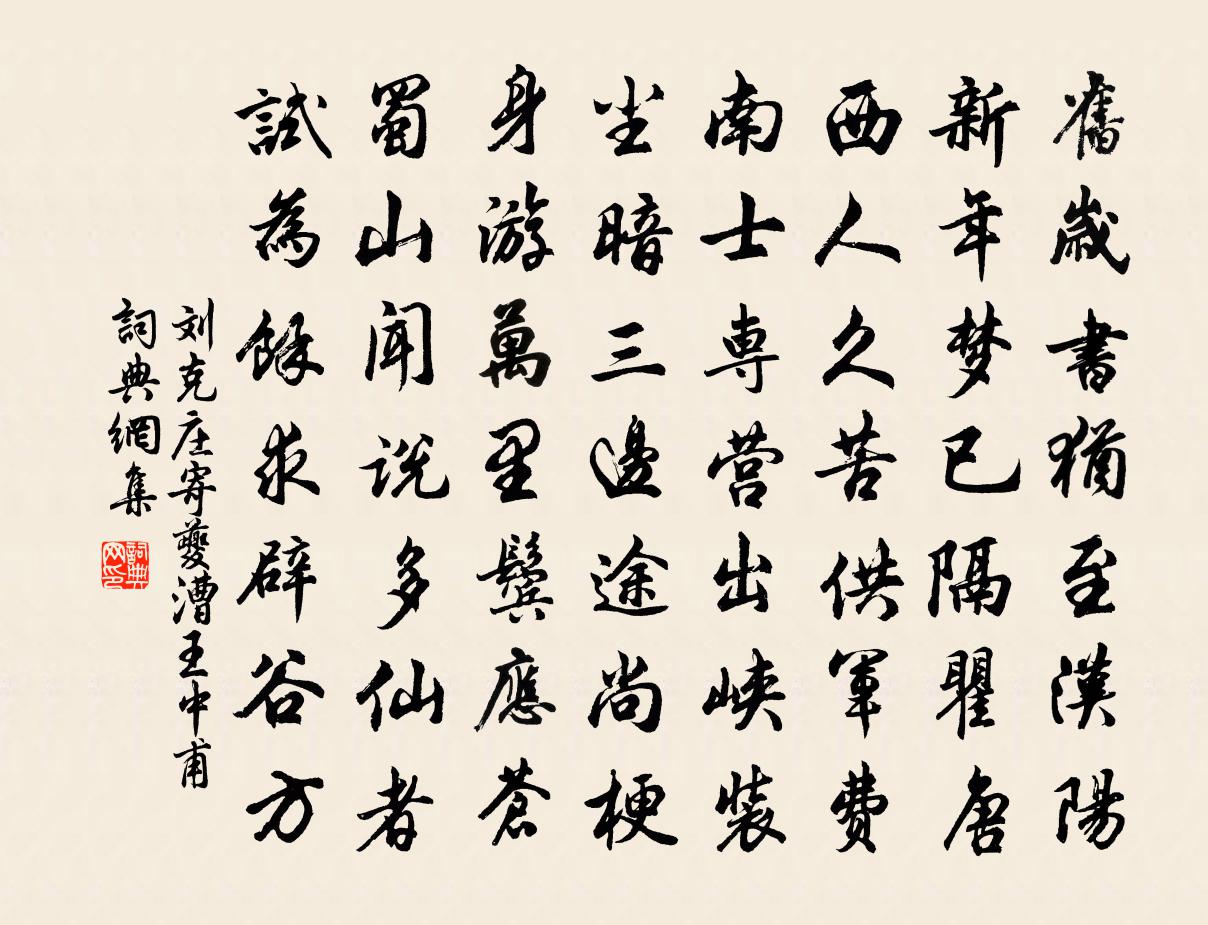 舊歲書猶至漢陽
新年梦已隔瞿唐
西人久苦供軍費
南士専营出峡裝
尘暗三邊途尚梗
身游萬里鬓應蒼
蜀山闻说多仙者
試為餘求辟谷方
刘克庄寄夔漕王中甫
詞典網集
詞典网印